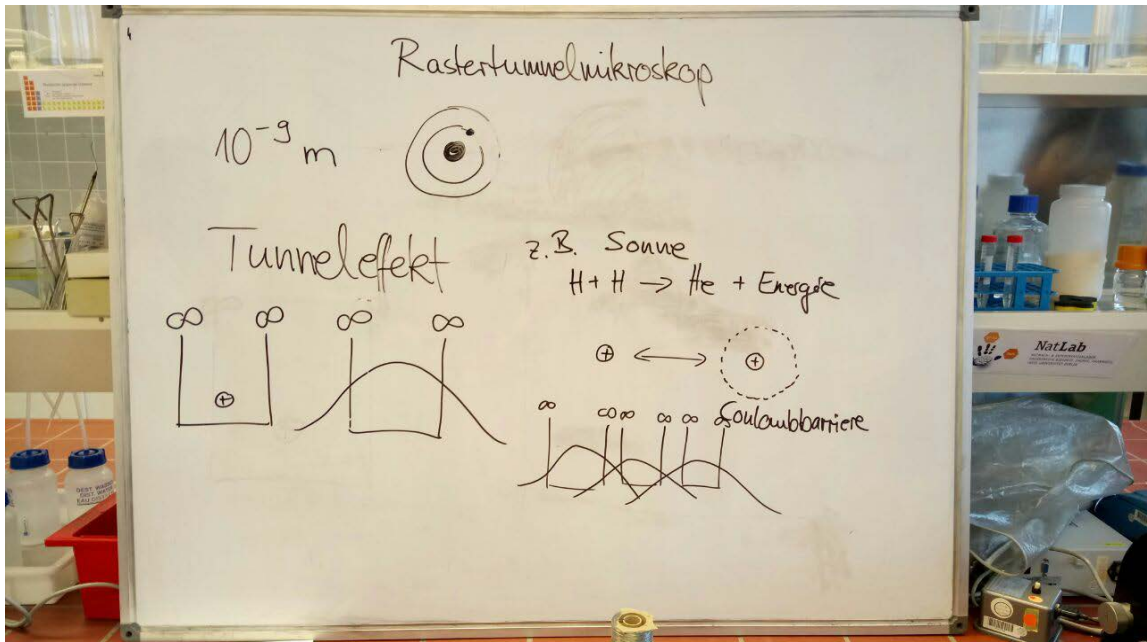 Rastertunnelmikroskop
10⁻⁹ m
Tunneleffekt
z.B. Sonne
H + H → He + Energie
⊕ ↔ ⊕
∞ ∞ ∞ ∞
⊕
∞ ∞ ∞ ∞ ∞ ∞
Coulombbarriere
NatLab
DEST. WASSER